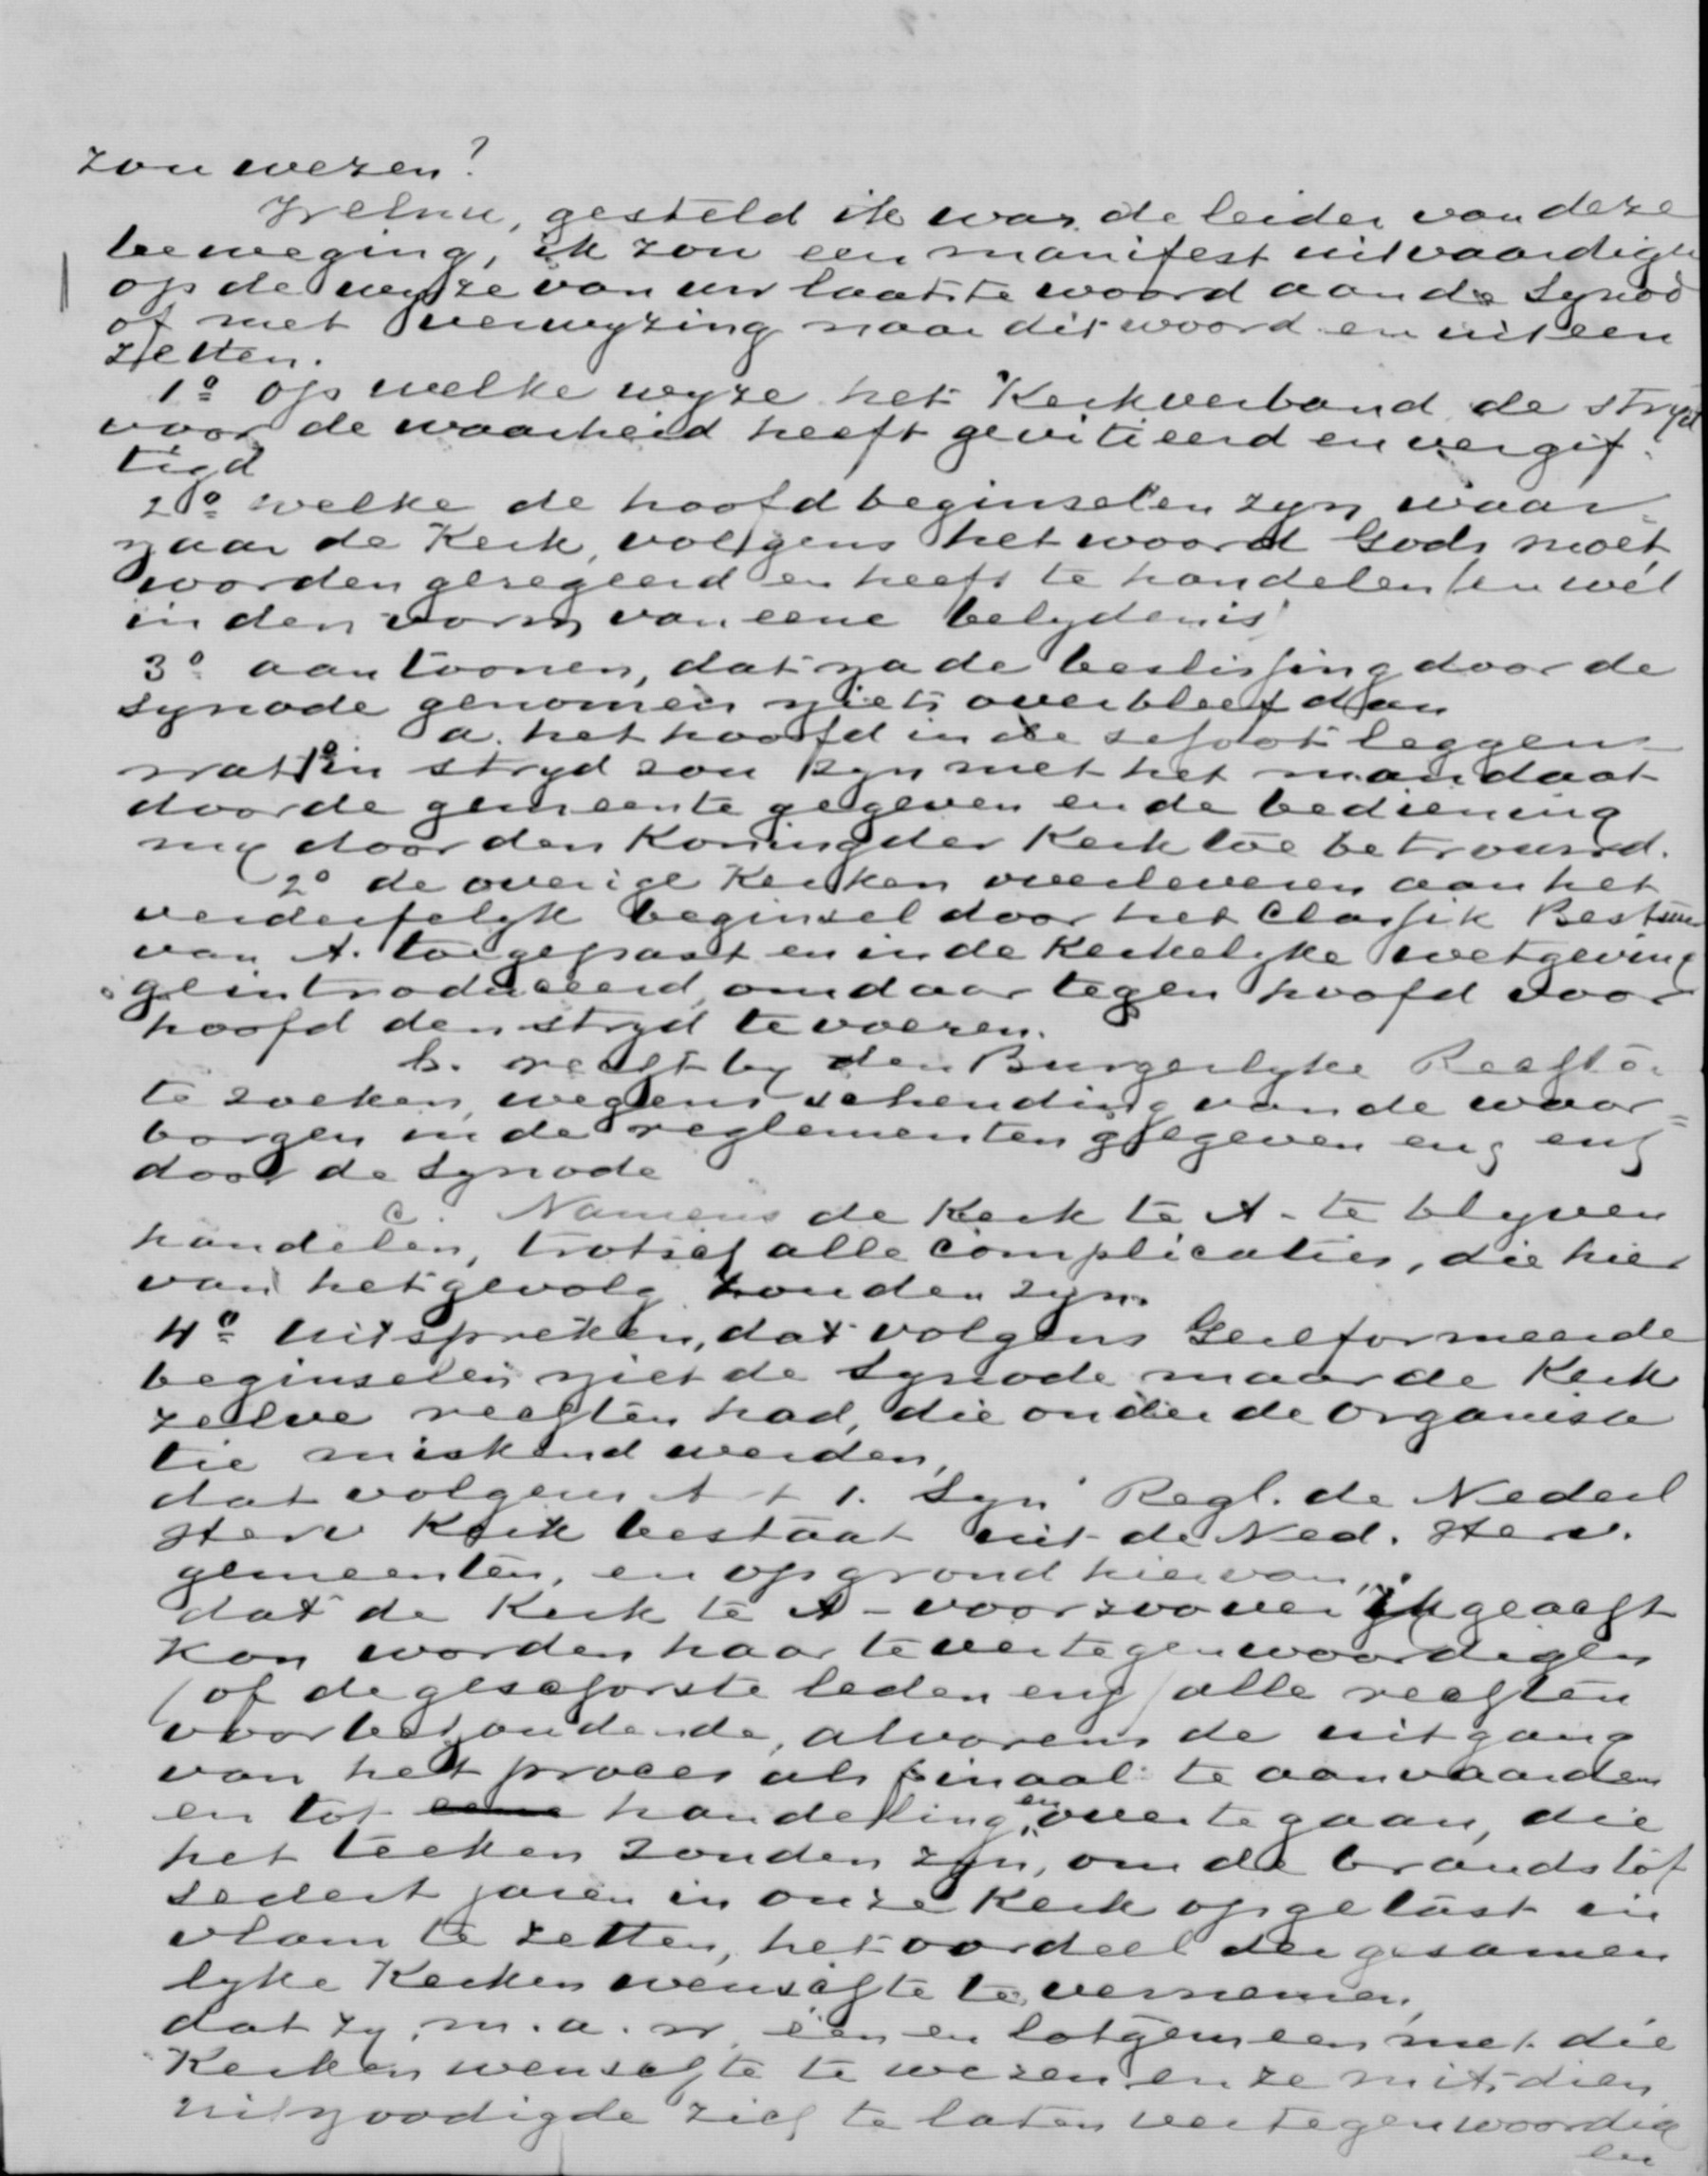 zou wezen?
Welnu, gesteld ik was de leider van deze
beweging, ik zou een manifest uitvaardigen
op de wyze van uw laatste woord aan de Synod
of met verwyzing naar dit woord en uiteen
zetten.
1o op welke wyze het Kerkverband de stryd
voor de waarheid heeft gevitieerd en vergif-
tigd
2o welke de hoofdbeginselen zyn waar-
naar de Kerk, volgens het woord Gods moet
worden geregeerd en heeft te handelen (en wel
in den vorm van eene belydenis)
3o aantoonen, dat na de beslissing door de
Synode genomen niets overbleef dan
a. het hoofd in de schoot leggen
wat 1o in stryd zou zyn met het mandaat
door de gemeente gegeven en de bediening
my door den Koning der Kerk toebetrouwd.
2o de overige Kerken overleveren aan het
verderfelyk beginsel door het Classik Bestuur
van A. toegepast en in de Kerkelyke wetgeving
geintroduceerd, om daar tegen hoofd voor
hoofd den stryd te voeren.
b. recht by den Burgerlyke Rechter
te zoeken, wegens schending van de waar=
borgen in de reglementen gegeven enz enz
door de Synode
c. Namens de Kerk te A - te blyven
handelen, trotsch alle complicaties, die hier
van het gevolg zouden zyn.
4o uitspreken, dat volgens Gereformeerde
beginselen niet de Synode maar de Kerk
zelve rechten had, die onder de organisa
tie miskend werden,
dat volgens Art 1. Syn Regl. de Nederl
Herv Kerk bestaat uit de Ned. Herv.
gemeenten, en op grond hiervan,
dat de Kerk te A - voor zoover ik geacht
kon worden haar te vertegenwoordigen
(of de geschorste leden enz) alle rechten
voorbehoudende, alvorens de uitgang
van het proces als finaal te aanvaarden
en tot eene handelingen over te gaan, die
het teeken zouden zyn, om de brandstof
sedert jaren in onze Kerk opgetast in
vlam te zetten, het oordeel der gesamen
lyke Kerken wenschte te vernemen,
dat zy, m.a.w. één en lotgemeen met die
Kerken wenschte te wezen en ze mitsdien
uitnoodigde zich te laten vertegenwoordig
en